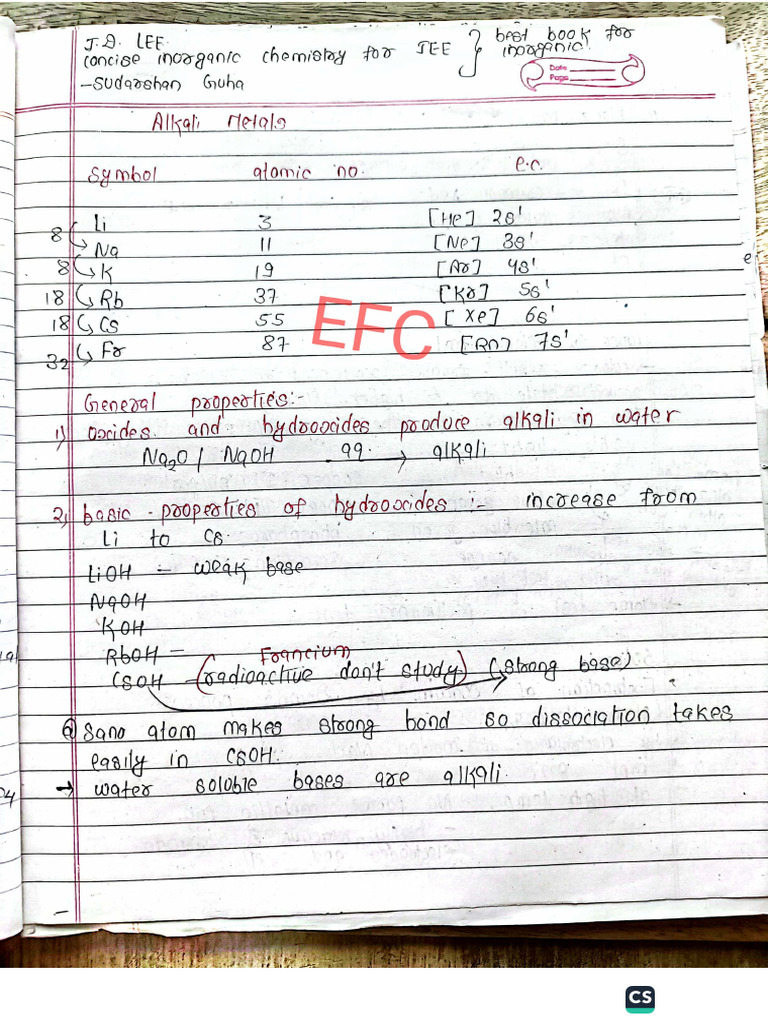 J.D. LEE.
concise inorganic chemistry for JEE } best book for inorganic.
-Sudarshan Guha
Date
Page
Alkali Metals
Symbol atomic no. e.c.
Li 3 [He] 2s¹
8 Na 11 [Ne] 3s¹
8 K 19 [Ar] 4s¹
18 Rb 37 [Kr] 5s¹
18 Cs 55 [Xe] 6s¹
32 Fr 87 [Rn] 7s¹
EFC
General properties:-
1) oxides and hydrooxides produce alkali in water
Na₂O / NaOH aq. → alkali
2) basic properties of hydrooxides :- increase from
Li to Cs.
LiOH - weak base
NaOH
KOH
RbOH - Francium
CsOH - (radioactive don't study) (strong base)
atom makes strong bond so dissociation takes
easily in CsOH.
→ water soluble bases are alkali.
CS